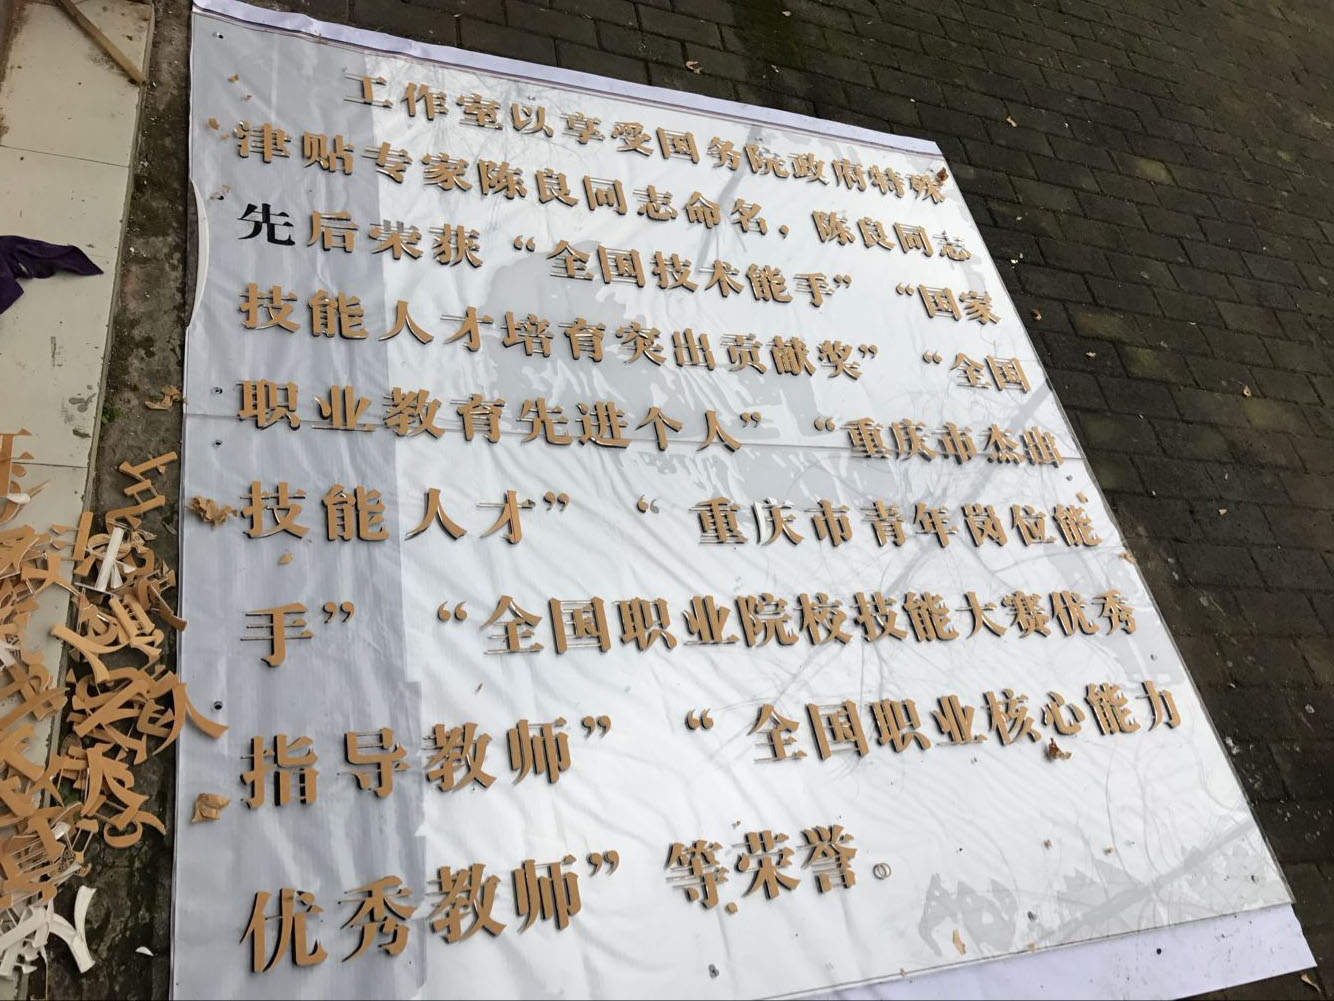 工作室以享受国务院政府特殊
津贴专家陈良同志命名，陈良同志
先后荣获“全国技术能手” “国家
技能人才培育突出贡献奖” “全国
职业教育先进个人” “重庆市杰出
技能人才” “重庆市青年岗位能
手” “全国职业院校技能大赛优秀
指导教师” “全国职业核心能力
优秀教师”等荣誉。